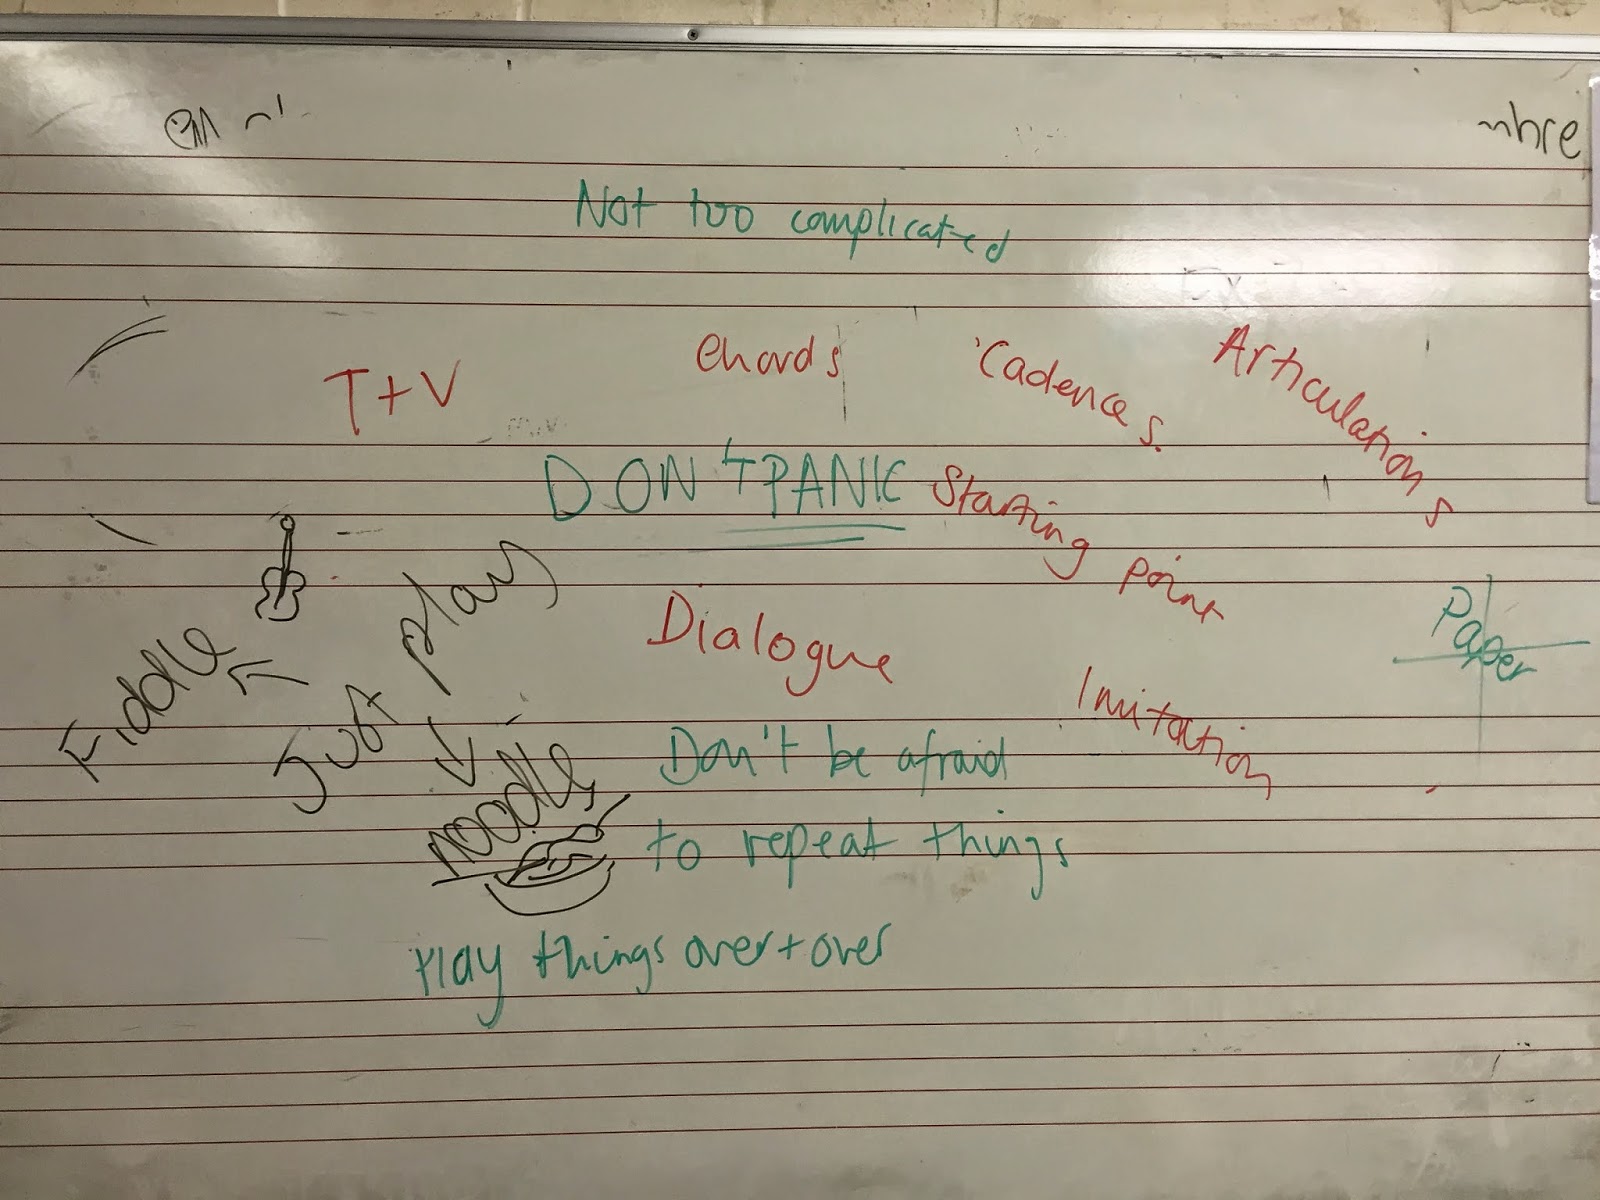 Not too complicated
T+V
Chords
Cadences.
Articulations
DON'T PANIC
Starting point
Just play
Fiddle
Dialogue
Imitation
Paper
noodle
Don't be afraid
to repeat things
Play things over + over